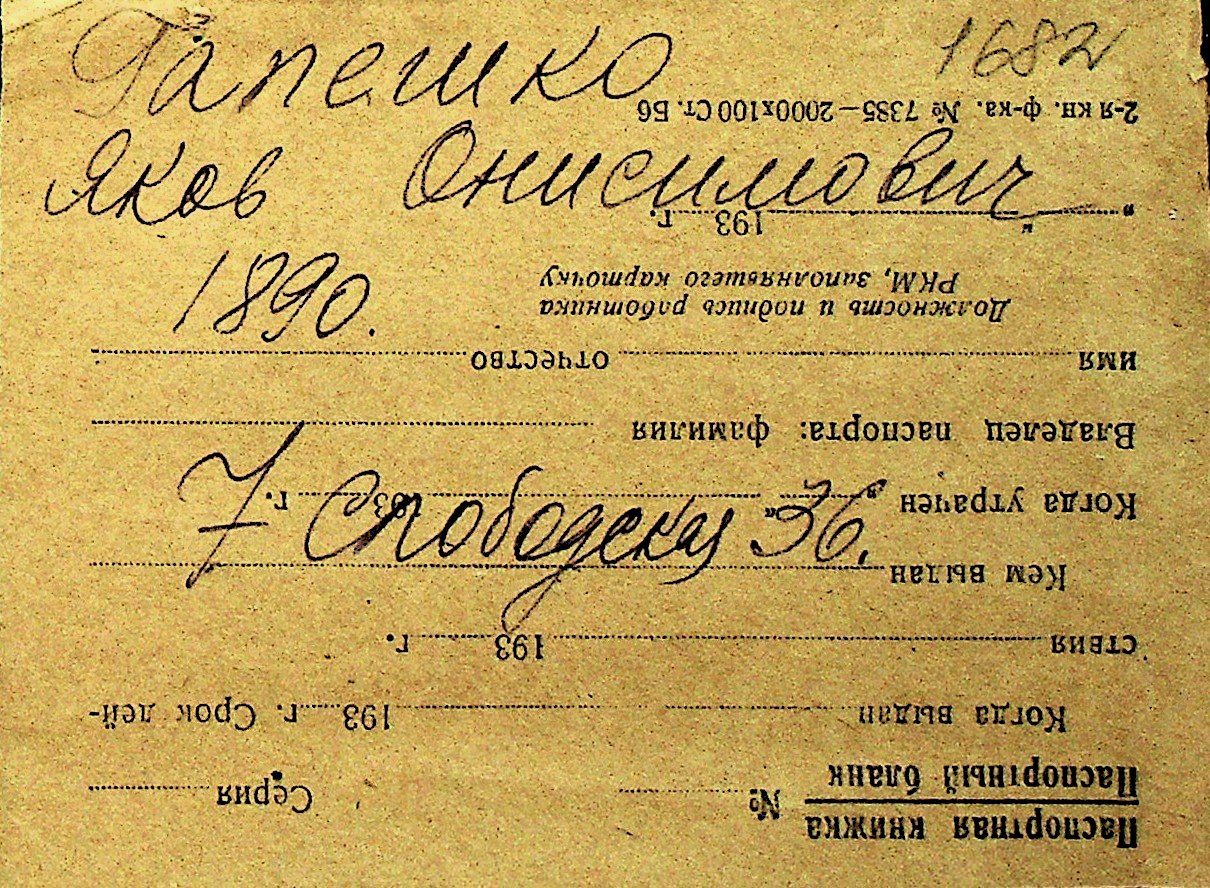 1682
Гапешко
Яков Онисимович
1890.
7 Слободская 36.
Паспортная книжка
Паспортный бланк
№ Серия
Когда выдан 193 г. Срок дей-
ствия 193 г.
Кем выдан
Когда утрачен " " 193 г.
Владелец паспорта: фамилия
имя отчество
Должность и подпись работника
РКМ, заполнявшего карточку
" " 193 г.
2-я кн. ф-ка. № 7385—2000х100 Ст. Б6